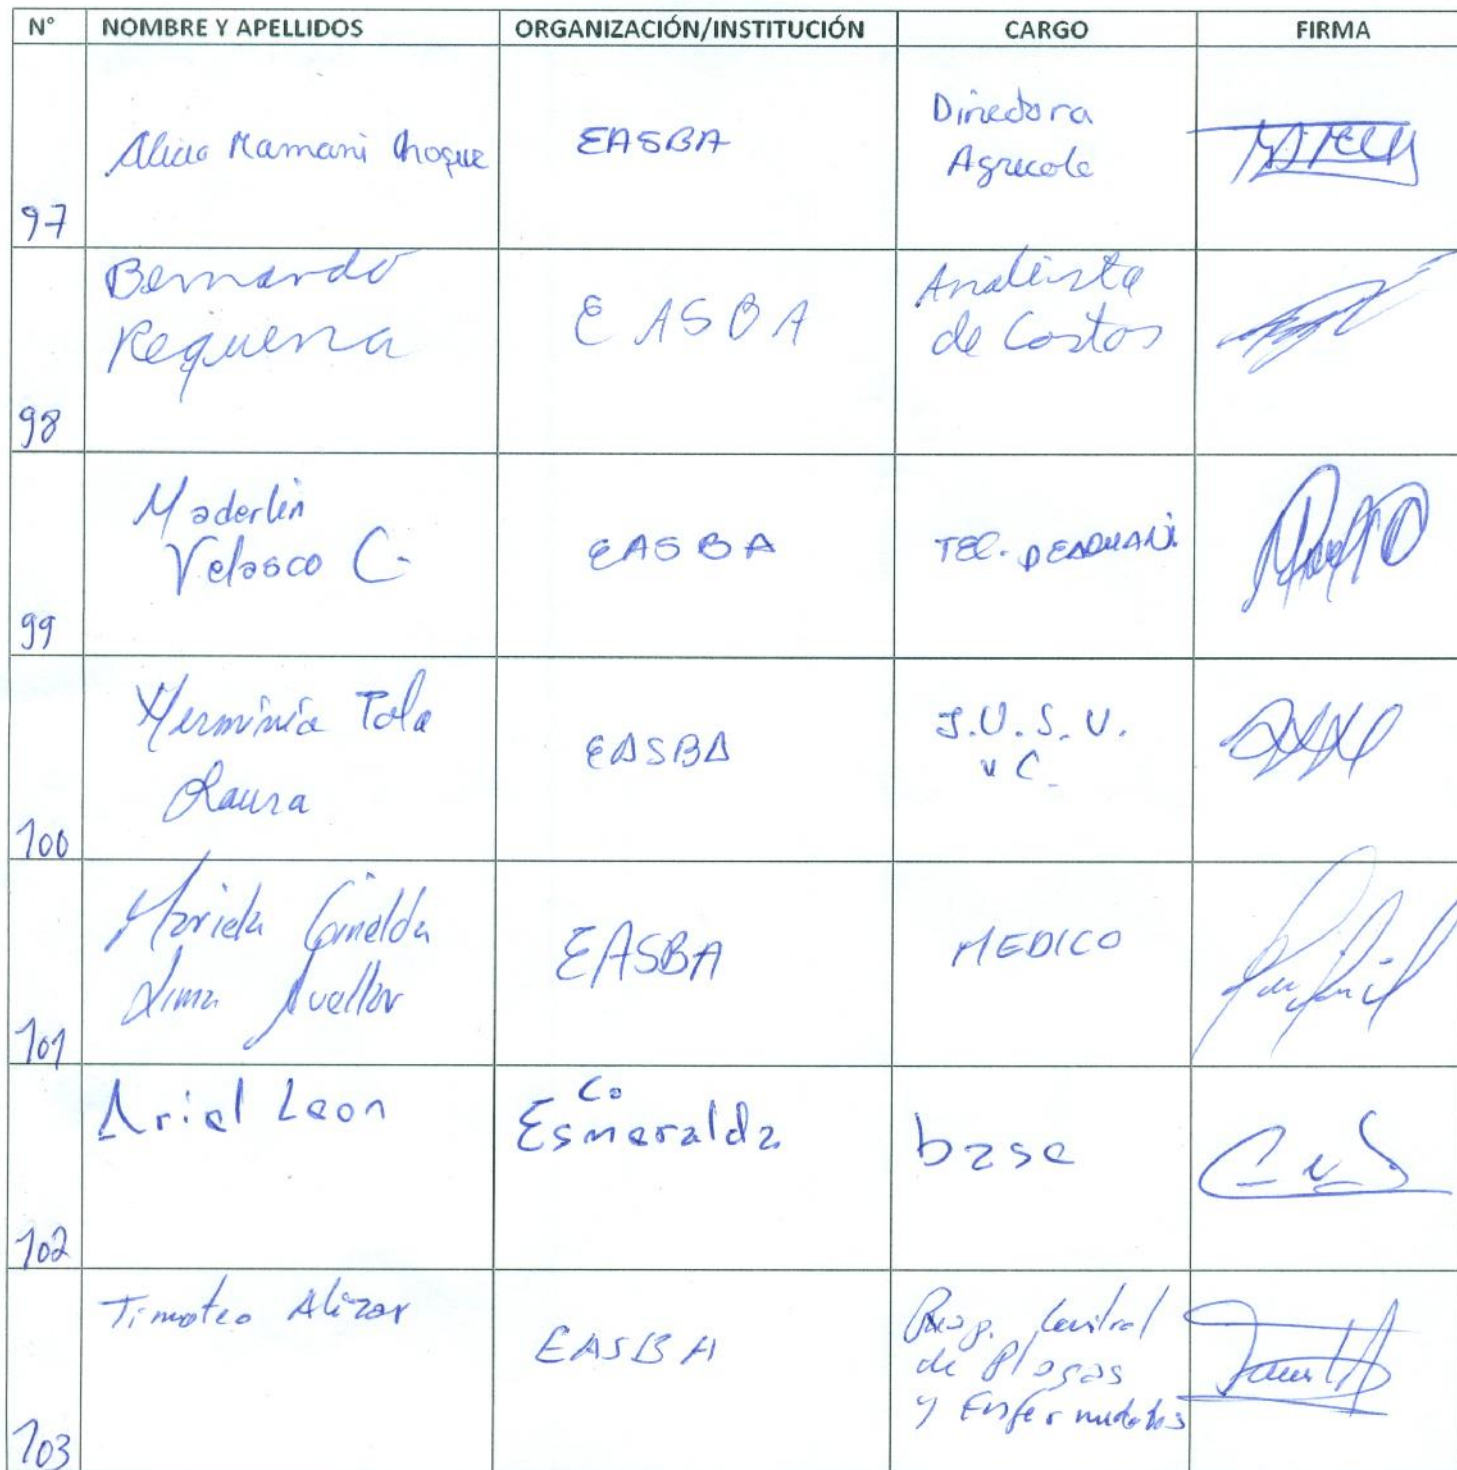 N° NOMBRE Y APELLIDOS ORGANIZACIÓN/INSTITUCIÓN CARGO FIRMA
97 Alicia Mamani Choque EASBA Directora
Agricola
98 Bernardo
Requena EASBA Analista
de Costos
99 Maderlin
Velasco C. EASBA TEC.
100 Herminia Tola
Laura EASBA J.U.S.V.
v C.
101 Mariela
Lima Cuellar EASBA MEDICO
102 Ariel Leon Co
Esmeralda base
103 Timoteo Alizar EASBA Resp. Control
de Plagas
y Enfermedades